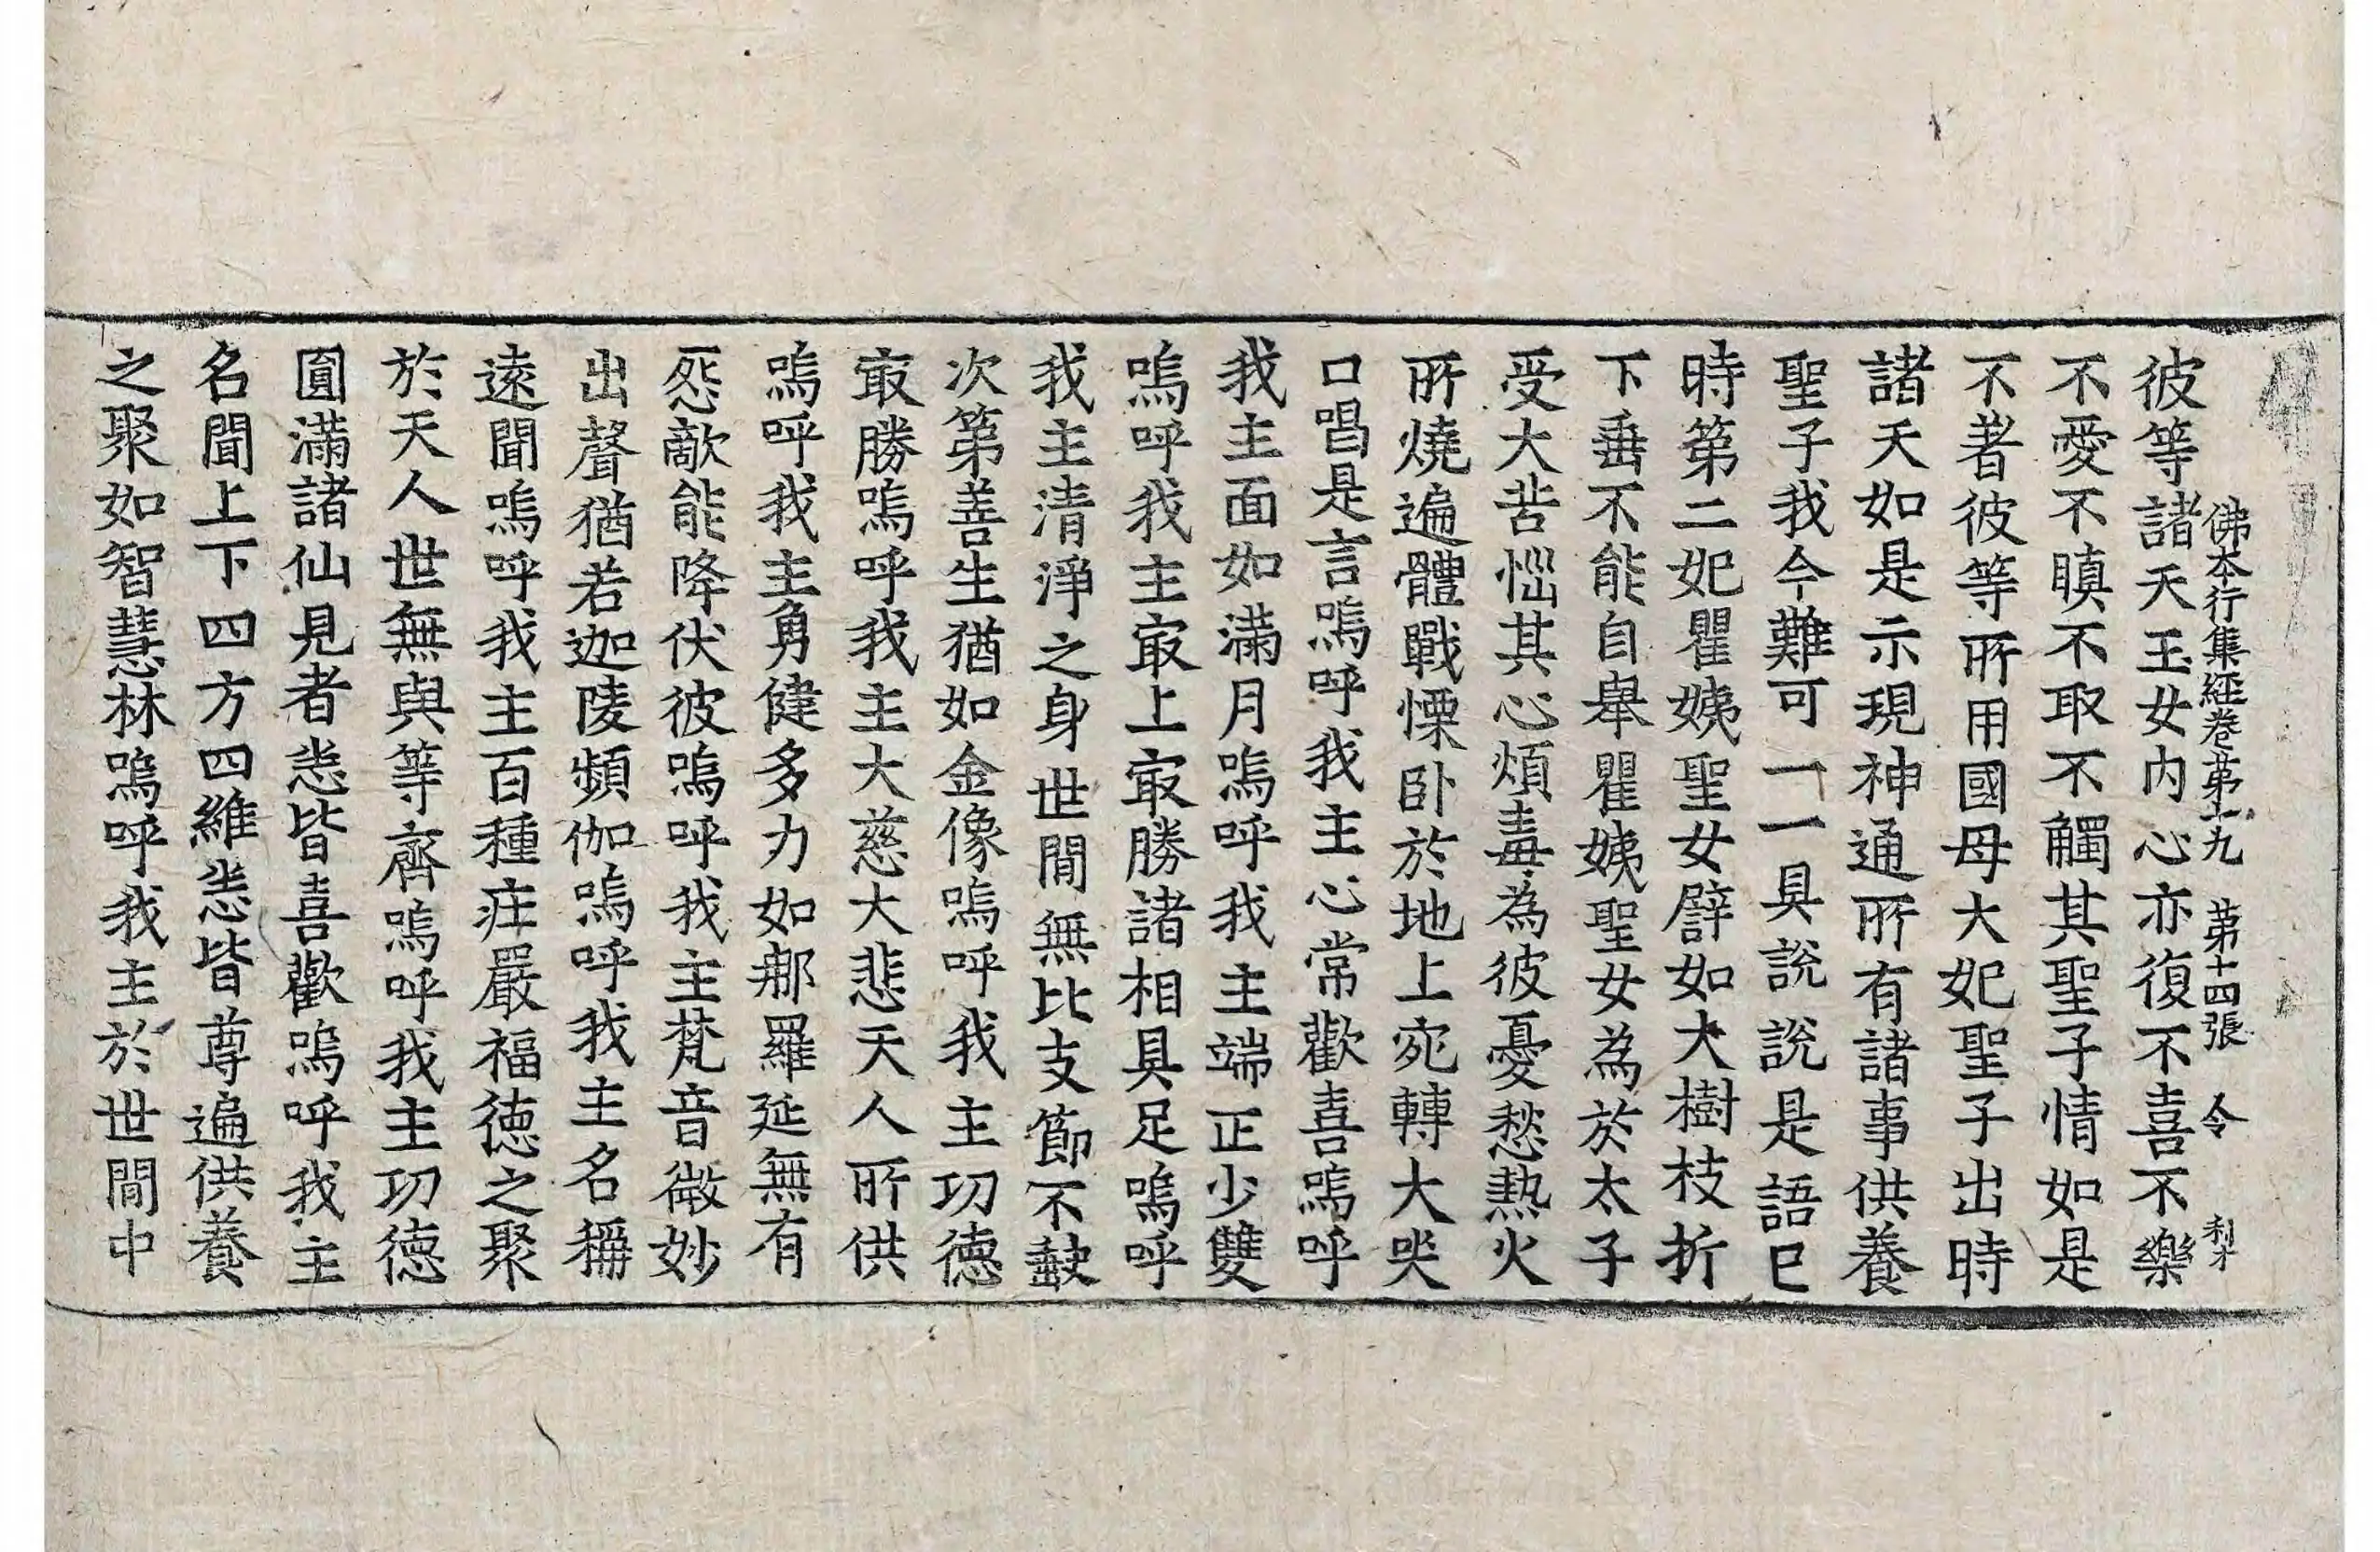 佛本行集經卷第十九 第十四張 令
彼等諸天玉女内心亦復不喜不樂
不愛不瞋不取不觸其聖子情如是
不著彼等所用國母大妃聖子出時
諸天如是示現神通所有諸事供養
聖子我今難可一一具說說是語已
時第二妃瞿姨聖女譬如大樹枝折
下垂不能自舉瞿姨聖女為於太子
受大苦惱其心煩毒為彼憂愁熱火
所燒遍體戰慄卧於地上宛轉大哭
口唱是言嗚呼我主心常歡喜嗚呼
我主面如滿月嗚呼我主端正少雙
嗚呼我主㝡上㝡勝諸相具足嗚呼
我主清淨之身世閒無比支節不𡙇
次第善生猶如金像嗚呼我主功德
㝡勝嗚呼我主大慈大悲天人所供
嗚呼我主勇健多力如那羅延無有
怨敵能降伏彼嗚呼我主梵音微妙
出聲猶若迦陵頻伽嗚呼我主名稱
遠聞嗚呼我主百種莊嚴福德之聚
於天人世無與等齊嗚呼我主功德
圓滿諸仙見者悉皆喜歡嗚呼我主
名聞上下四方四維悉皆尊遍供養
之聚如智慧林嗚呼我主於世閒中